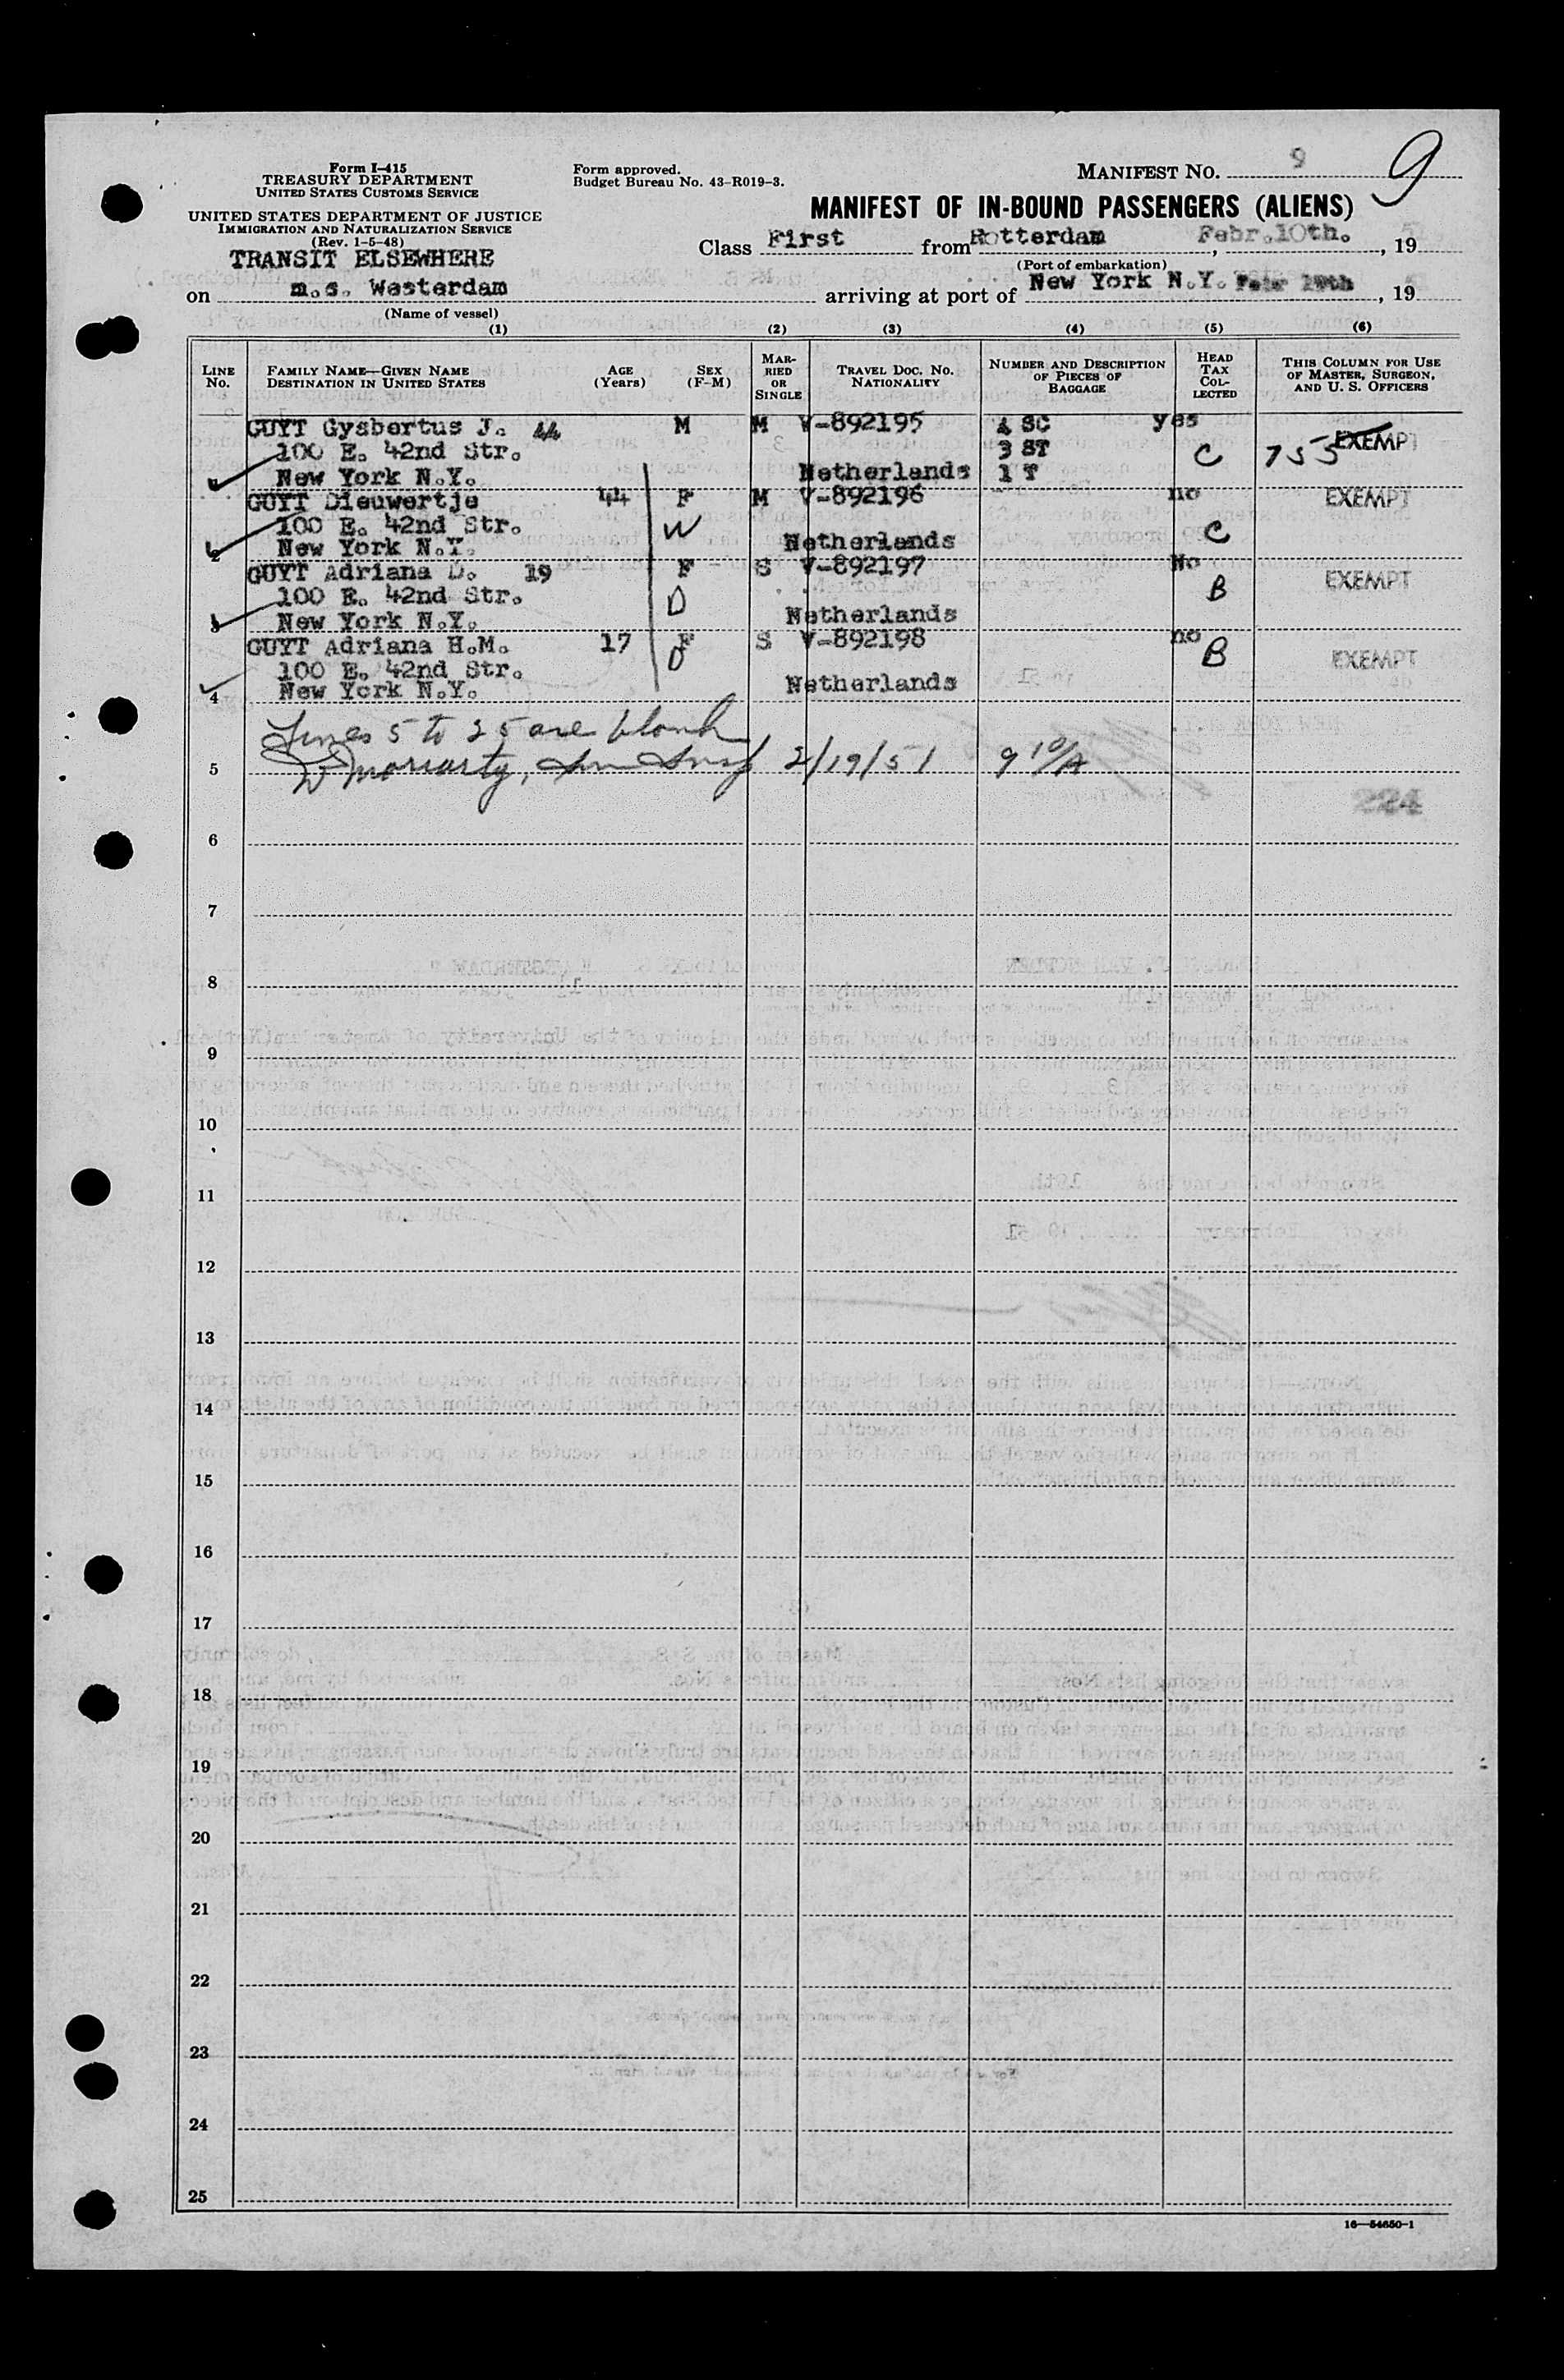 Form I-415
TREASURY DEPARTMENT
UNITED STATES CUSTOMS SERVICE
UNITED STATES DEPARTMENT OF JUSTICE
IMMIGRATION AND NATURALIZATION SERVICE
(Rev. 1-5-48)
TRANSIT ELSEWHERE
Form approved.
Budget Bureau No. 43-R019-3.
MANIFEST NO. 9
9
MANIFEST OF IN-BOUND PASSENGERS (ALIENS)
Class First from Rotterdam Febr.10th., 19
(Port of embarkation)
on m.s. Westerdam arriving at port of New York N.Y. Febr 19th, 19
(Name of vessel)
(1) (2) (3) (4) (5) (6)
LINE No. FAMILY NAME—GIVEN NAME DESTINATION IN UNITED STATES AGE (Years) SEX (F-M) MARRIED OR SINGLE TRAVEL DOC. NO. NATIONALITY NUMBER AND DESCRIPTION OF PIECES OF BAGGAGE HEAD TAX COLLECTED THIS COLUMN FOR USE OF MASTER, SURGEON, AND U. S. OFFICERS
GUYT Gysbertus J. 44 M M V-892195 4 SC yes EXEMPT
100 E. 42nd Str. 3 ST C 755
New York N.Y. Netherlands 1 T
GUYT Dieuwertje 44 F M V-892196 no EXEMPT
100 E. 42nd Str. W C
2 New York N.Y. Netherlands
GUYT Adriana D. 19 F S V-892197 No EXEMPT
100 E. 42nd Str. D B
3 New York N.Y. Netherlands
GUYT Adriana H.M. 17 F S V-892198 no
100 E. 42nd Str. D B EXEMPT
4 New York N.Y. Netherlands
Lines 5 to 25 are blank
5 W Moriarty, Imm Insp 2/19/51 9 10/A
224
6
7
8
9
10
11
12
13
14
15
16
17
18
19
20
21
22
23
24
25
16—54650-1